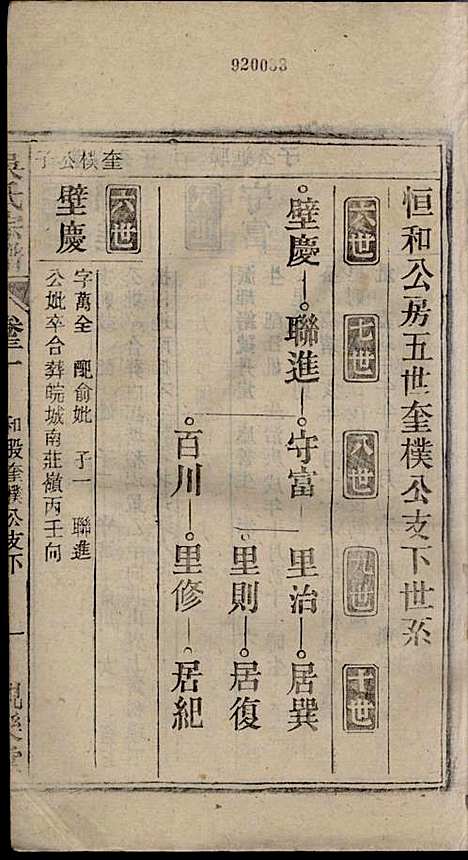 920033
恒和公房五世奎樸公支下世系
六世 七世 八世 九世 十世
璧慶 聯進 守富 里治 居巽
里則 居復
百川 里修 居紀
六世
奎樸公子
璧慶
字萬全 配俞妣 子一 聯進
公妣卒合葬皖城南莊嶺丙壬向
吳氏宗譜
卷三一 和股奎樸公支下 一